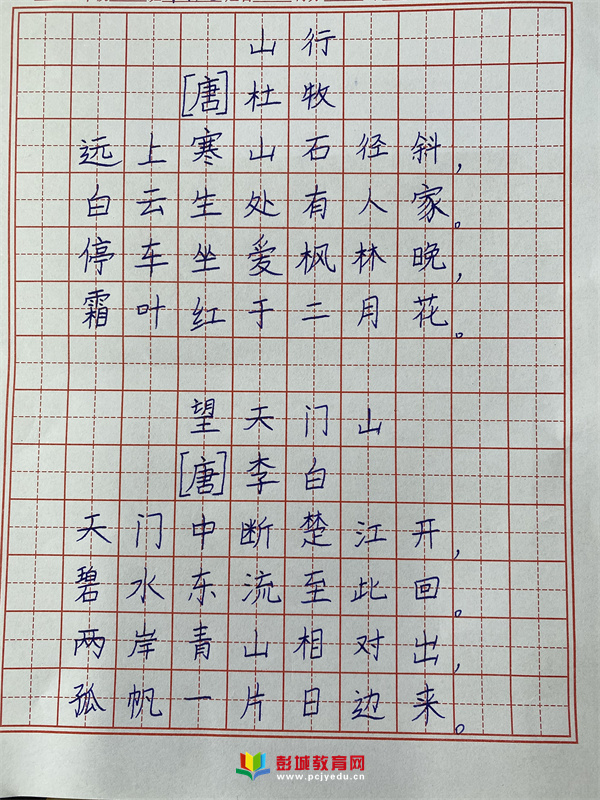 山行
[唐]杜牧
远上寒山石径斜，
白云生处有人家。
停车坐爱枫林晚，
霜叶红于二月花。
望天门山
[唐]李白
天门中断楚江开，
碧水东流至此回。
两岸青山相对出，
孤帆一片日边来。
彭城教育网
www.pcjyedu.cn